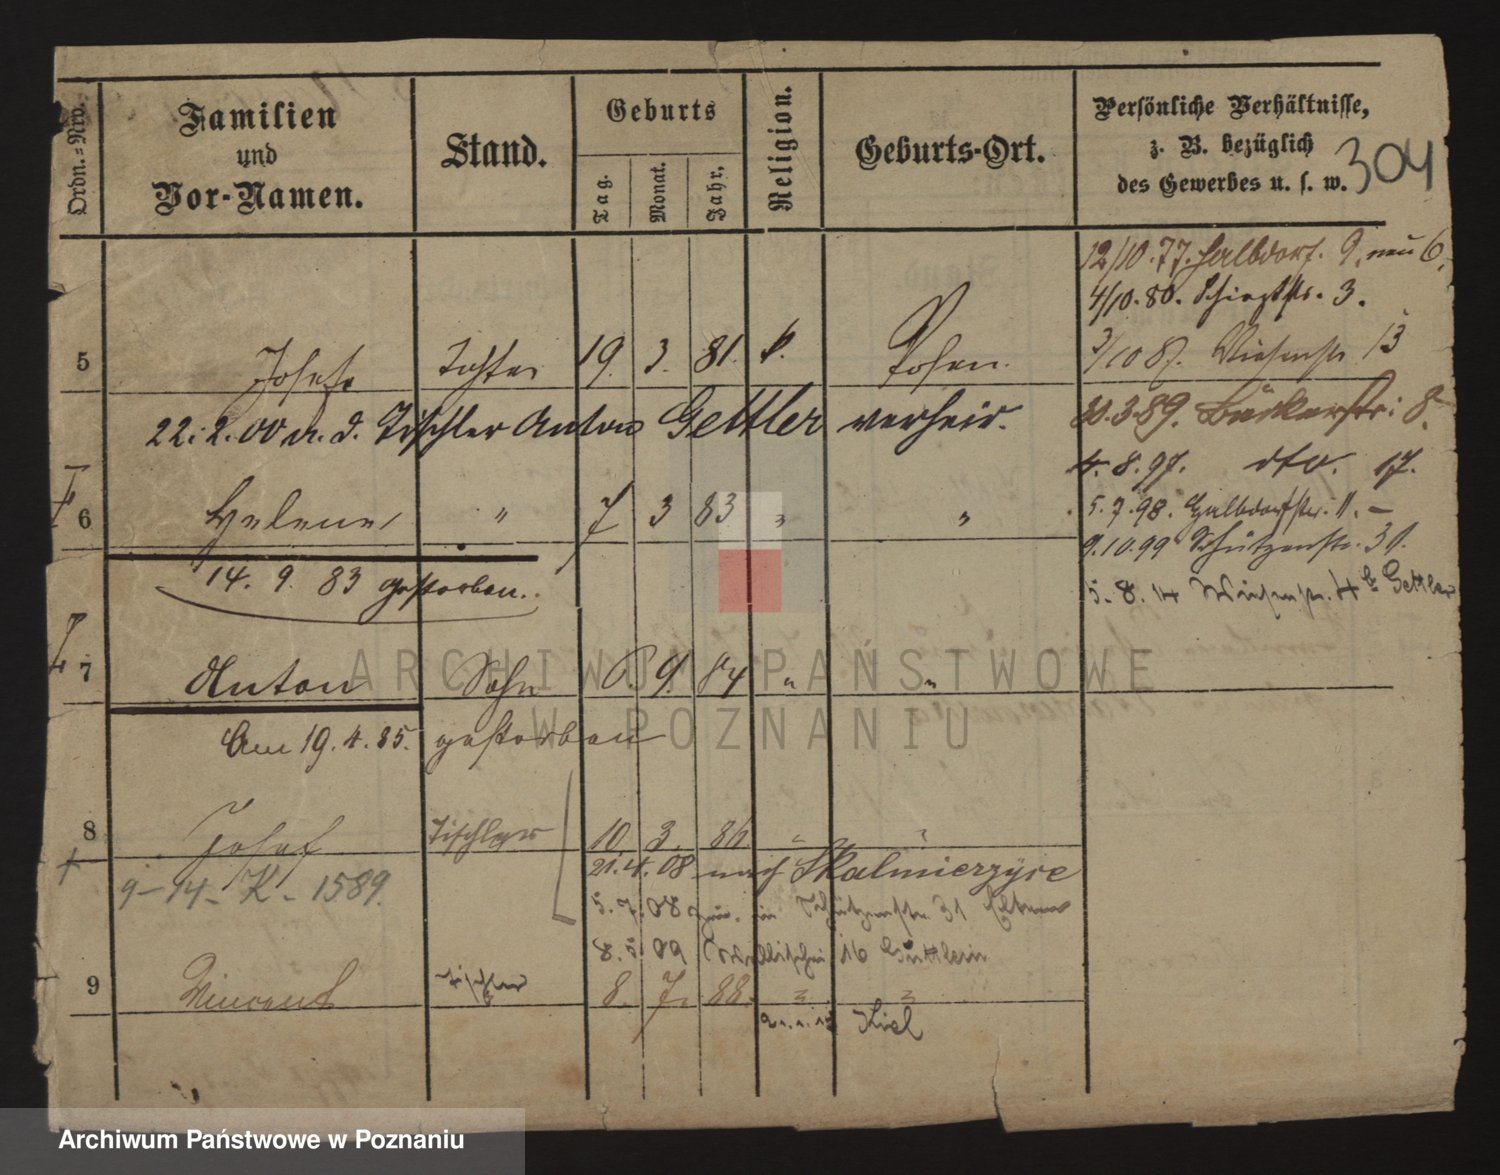 Ordn.=Nro.
Familien
und
Vor-Namen.
Stand.
Geburts
Tag.
Monat.
Jahr.
Religion.
Geburts-Ort.
Persönliche Verhältnisse,
z. B. bezüglich
des Gewerbes u. s. w.
304
12/10.77. Halbdorf. 9. neu 6.
4/10.80. Schießstr. 3.
5 Josefa Tochter 19. 3. 81. k. Posen.
Wiesenstr 13
22.2.00 m. d. Tischler Anton Gettler verheir.
30.3.89. Bäckerstr: 8.
4.8.97. dto. 17.
6 Helene " 7 3 83 " "
5.7.98. Halbdorfstr. 11. –
9.10.99 Schützenstr. 31.
14. 9. 83 gestorben.
5.8.14 Wiesenstr. 4 b Gettler
7 Anton Sohn 6. 9. 84 " "
Am 19.4.85. gestorben
8 Josef Tischler 10 3. 86 " "
21.4.08 nach Skalmierzyce
9–14–K–1589.
5.7.08 in Schützenstr. 31 Eltern
8.5.09 16
9 Vincent Tischler 8. 7. 88. " "
Kiel
ARCHIWUM PAŃSTWOWE
W POZNANIU
Archiwum Państwowe w Poznaniu